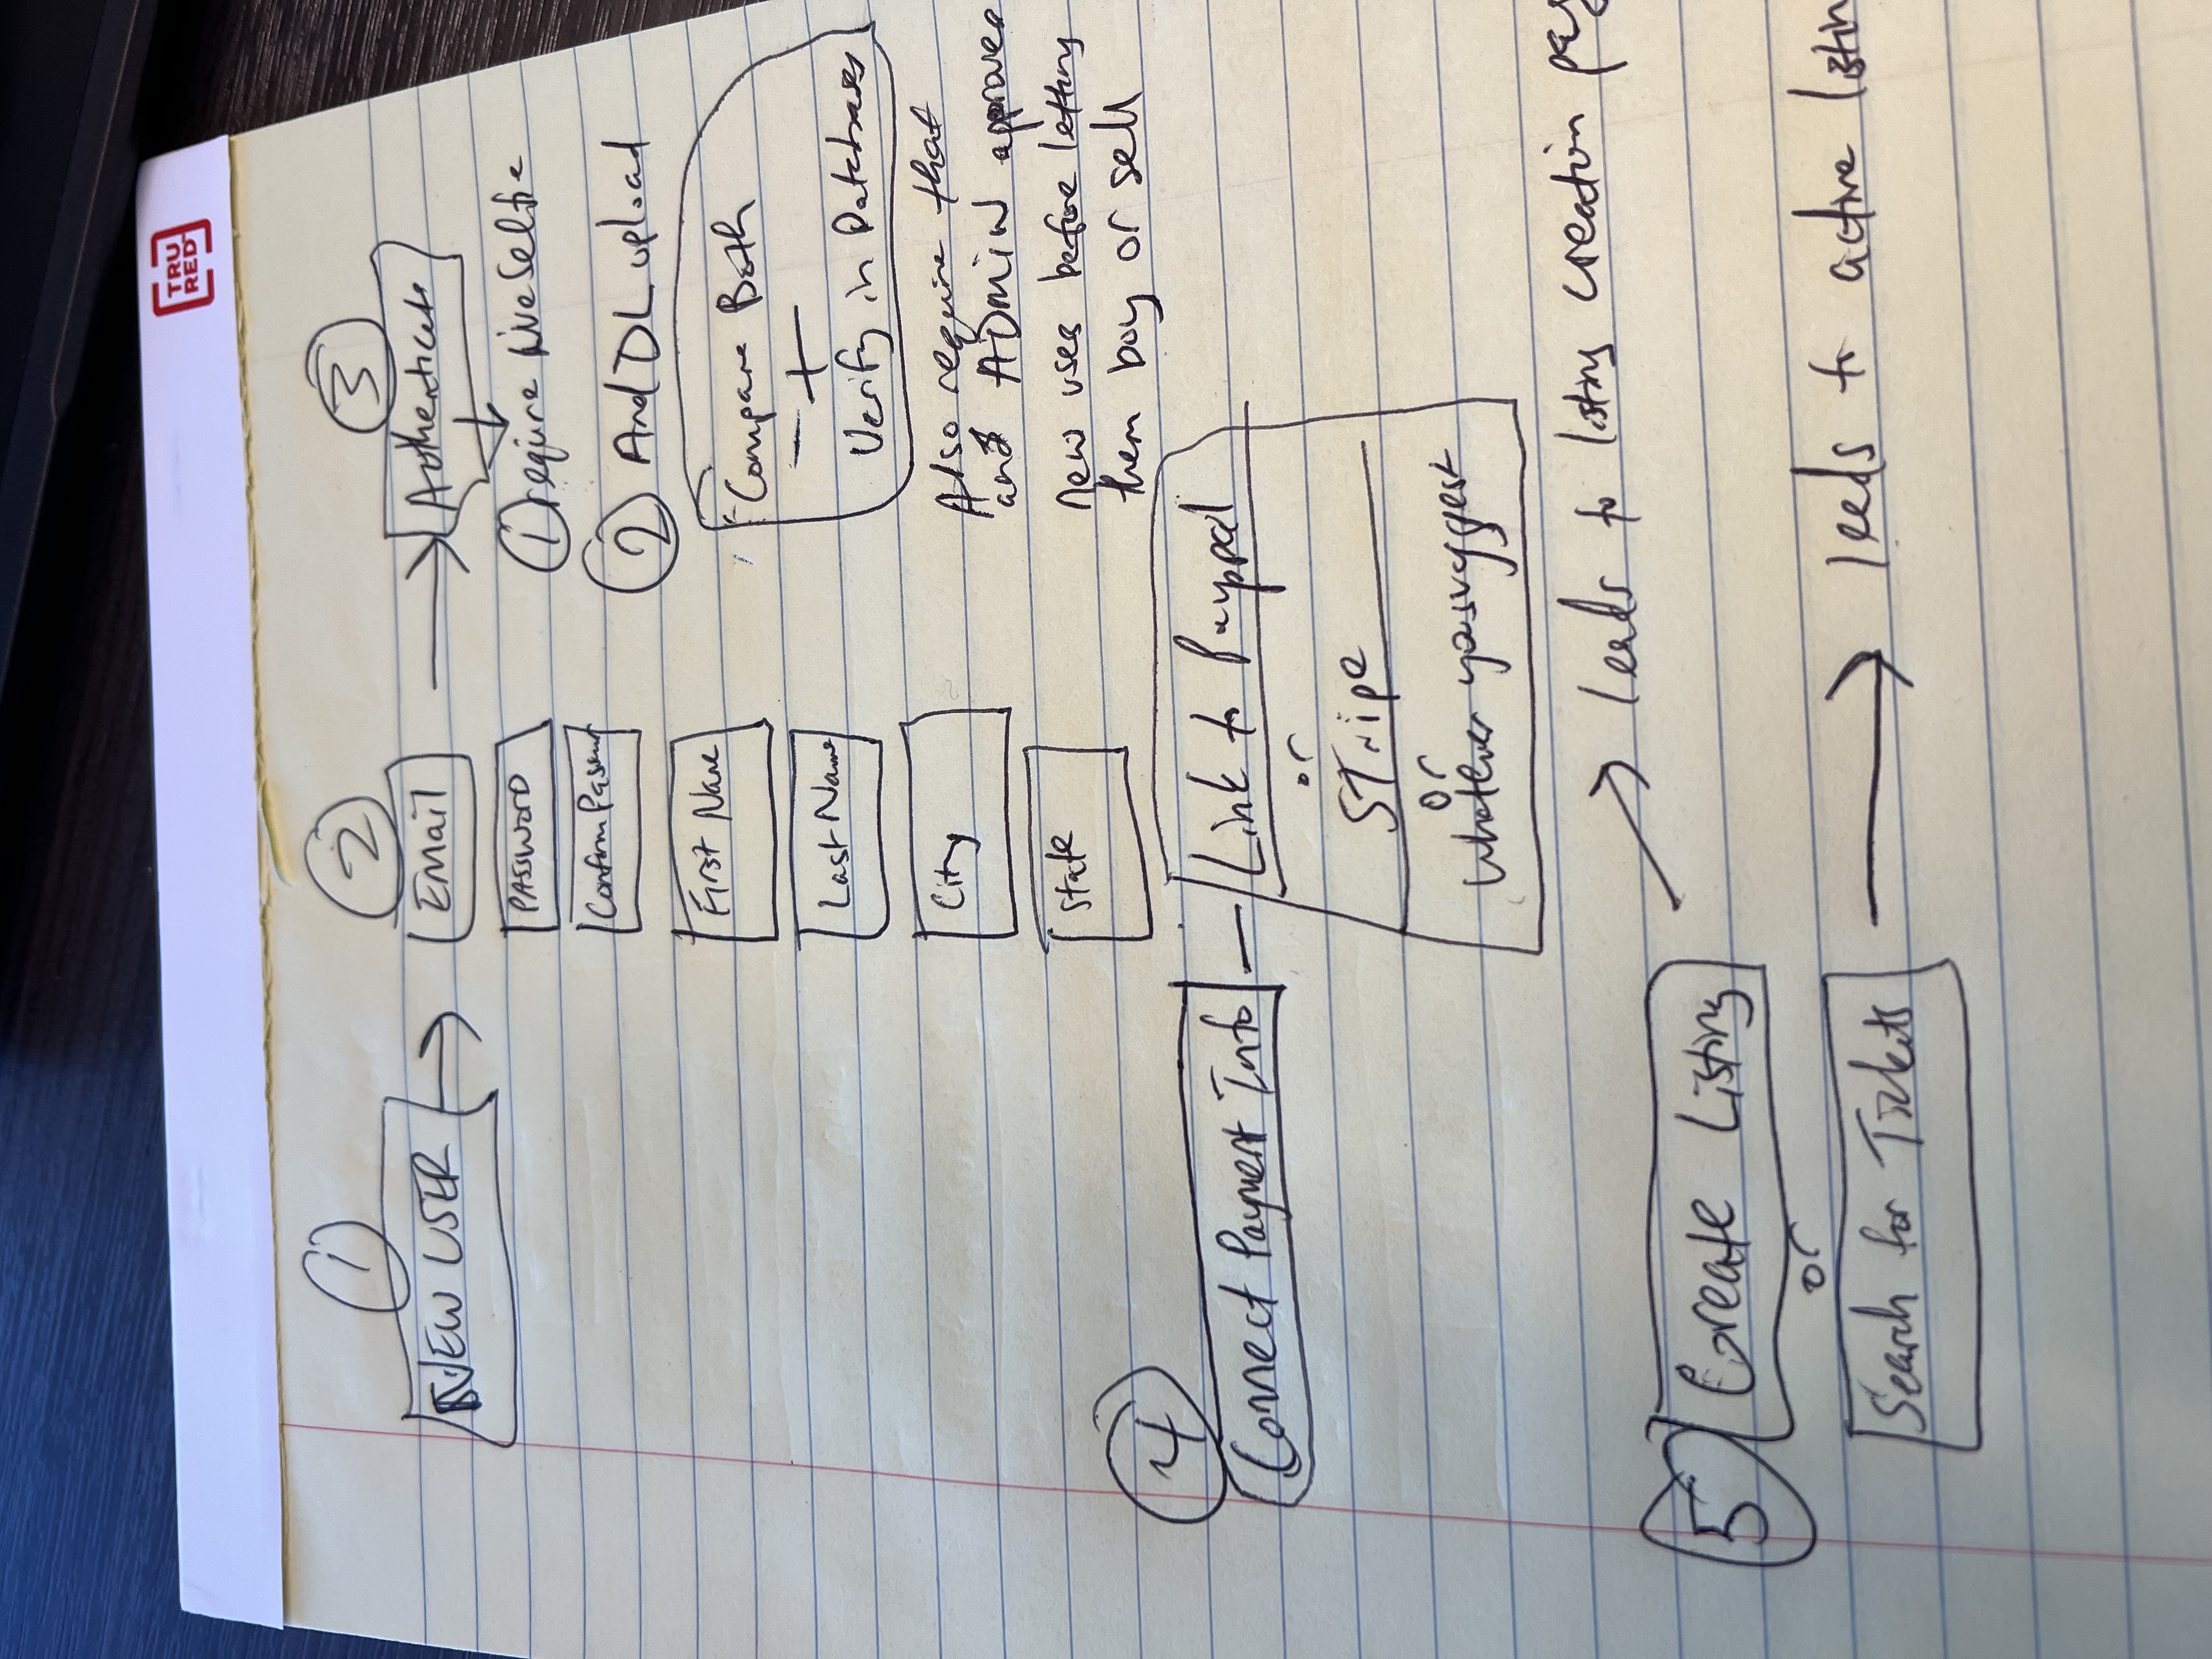 TRU
RED
1
NEW USER
2
Email
PASSWORD
Confirm
First Name
Last Name
City
State
3
Authenticate
1 require live Selfie
2 And DL upload
Compare Both
+
Verify in Databases
Also require that
and ADMIN approves
new uses before letting
them buy or sell
4
Connect Payment Info
Link to Payppal
or
STripe
or
whatever you suggest
5
Create Listing
leads to listing creation
or
Search for Tickets
leads to active